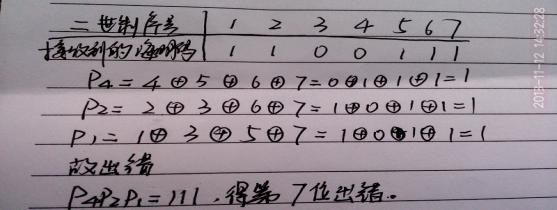 二进制序号 1 2 3 4 5 6 7
接收到的海明码 1 1 0 0 1 1 1
P4 = 4 ⊕ 5 ⊕ 6 ⊕ 7 = 0⊕1⊕1⊕1=1
P2 = 2 ⊕ 3 ⊕ 6 ⊕ 7 = 1⊕0⊕1⊕1=1
P1 = 1⊕ 3 ⊕ 5 ⊕ 7 = 1⊕0⊕1⊕1=1
故出错
P4P2P1=111,得第7位出错。
2013-11-12 14:32:28